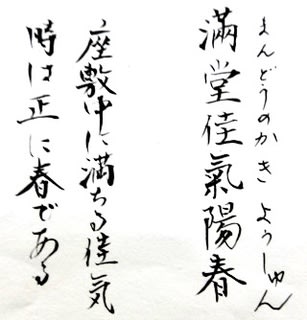 まんどうのかき ようしゅん
滿堂佳氣陽春
座敷中に満ちる佳気
時は正に春である